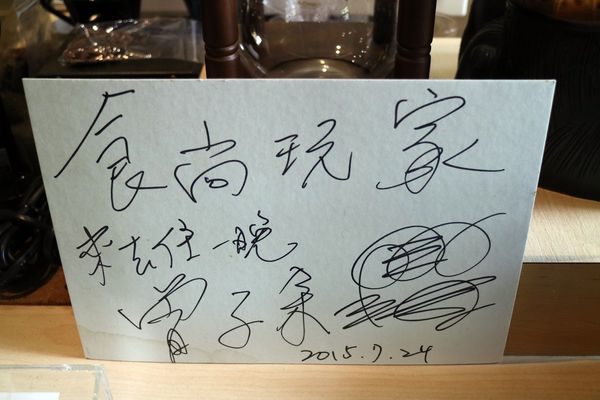 食尚玩家
來去住一晚
曾子余
2015.7.24